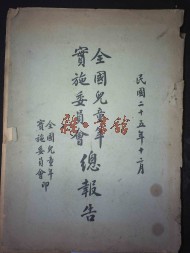 民國二十五年十二月
全國兒童年
實施委員會
總報告
全國兒童年
實施委員會印